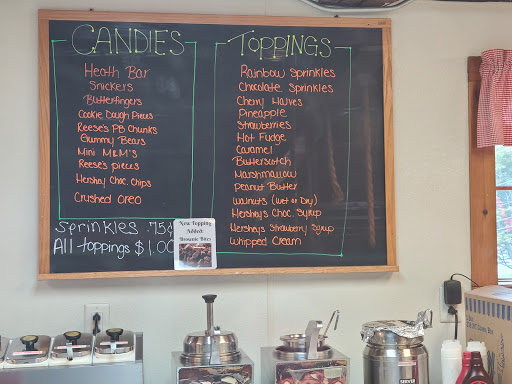 CANDIES
Heath Bar
Snickers
Butterfingers
Cookie Dough Pieces
Reese's PB Chunks
Gummy Bears
Mini M&M's
Reese's pieces
Hershey Choc. Chips
Crushed Oreo
Sprinkles .75¢
All toppings $1.00
TOPPINGS
Rainbow Sprinkles
Chocolate Sprinkles
Cherry Halves
Pineapple
Strawberries
Hot Fudge
Caramel
Butterscotch
Marshmallow
Peanut Butter
Walnuts (Wet or Dry)
Hershey's Choc. Syrup
Hershey's Strawberry Syrup
Whipped Cream
New Topping
Added:
Brownie Bites